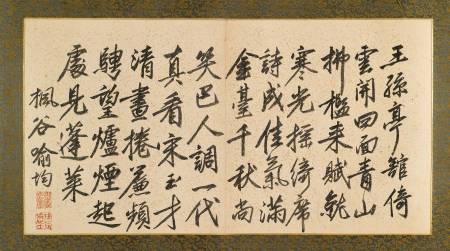 王孫亭館倚
雲開四面青山
拂檻来賦就
寒光摇綺席
詩成佳氣滿
金臺千秋尚
笑巴人調一代
真看宋玉才
清晝捲簾頻
騁望爐煙起
處見蓬莱
楓谷喻均